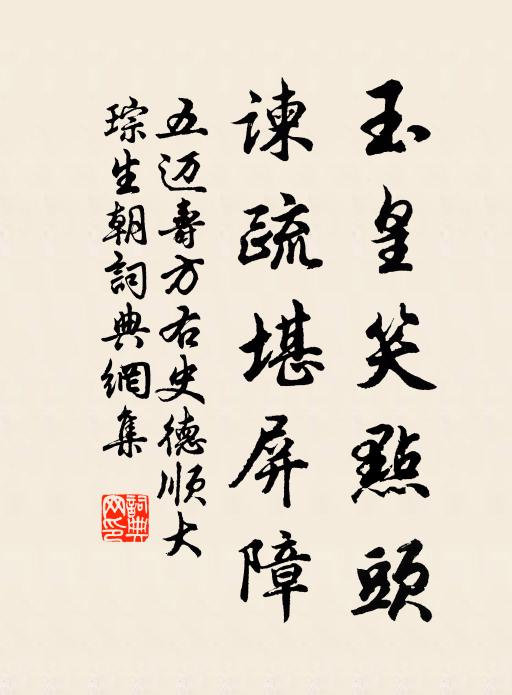 玉皇笑點頭
諫疏堪屏障
五迈壽方右史德順大
琮生朝詞典網集
詞典
网印